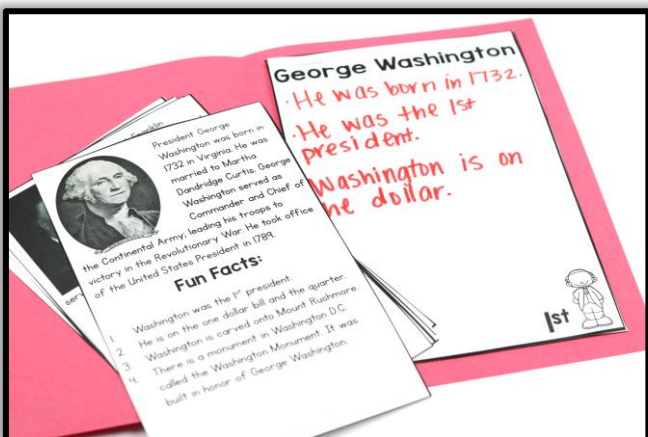 Franklin
President George
Washington was born in
1732 in Virginia. He was
married to Martha
Dandridge Curtis. George
Washington served as
Commander and Chief of
the Continental Army, leading his troops to
victory in the Revolutionary War. He took office
of the United States President in 1789.
Fun Facts:
1. Washington was the 1st president.
2. He is on the one dollar bill and the quarter.
3. Washington is carved onto Mount Rushmore.
4. There is a monument in Washington D.C.
called the Washington Monument. It was
built in honor of George Washington.
serv
George Washington
· He was born in 1732.
· He was the 1st
president.
Washington is on
he dollar.
1st